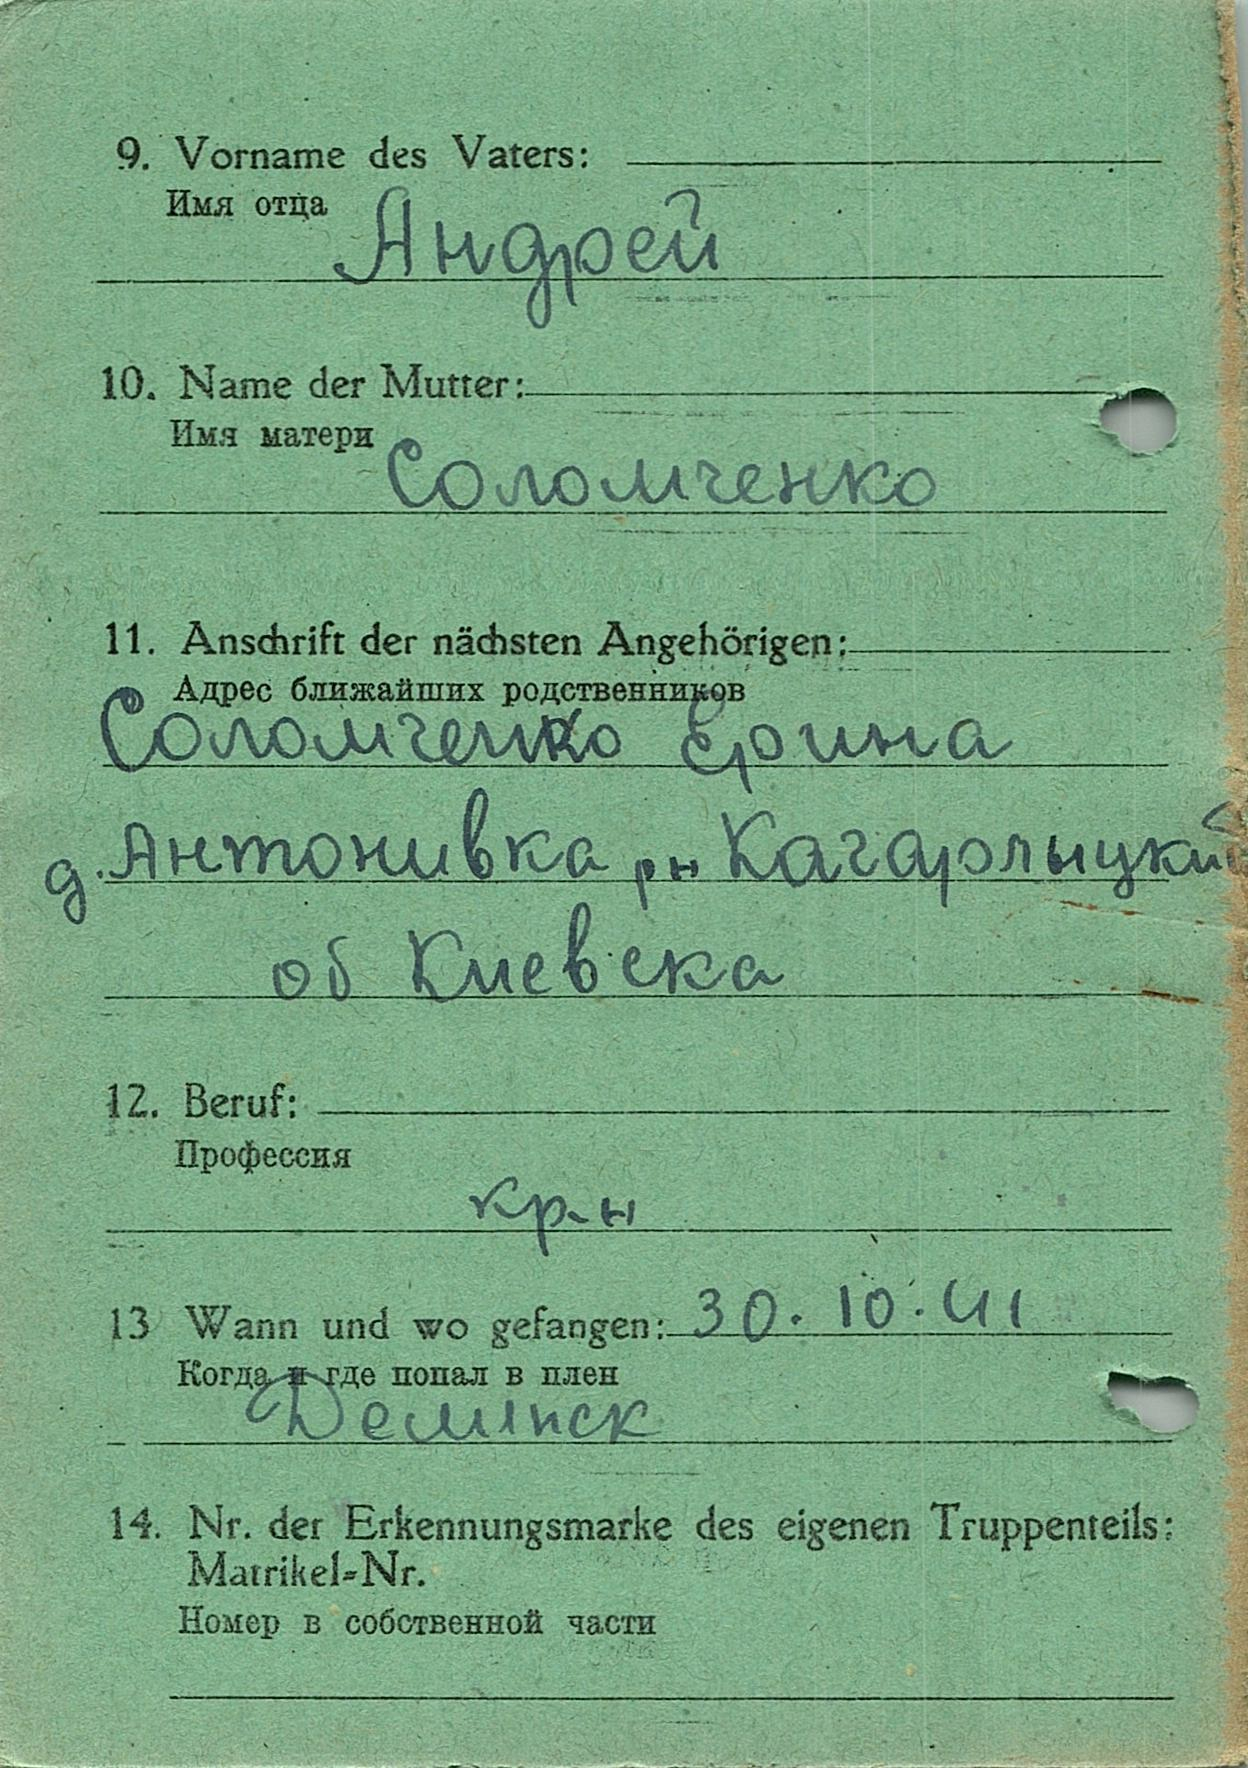 9. Vorname des Vaters:
Имя отца
Андрей
10. Name der Mutter:
Имя матери
Соломченко
11. Anschrift der nächsten Angehörigen:
Адрес ближайших родственников
Соломченко Ерина
д. Антонивка рн Кагарлыцкий
об Киевска
12. Beruf:
Профессия
кр-н
13 Wann und wo gefangen: 30.10.41
Когда и где попал в плен
Деминск
14. Nr. der Erkennungsmarke des eigenen Truppenteils:
Matrikel-Nr.
Номер в собственной части